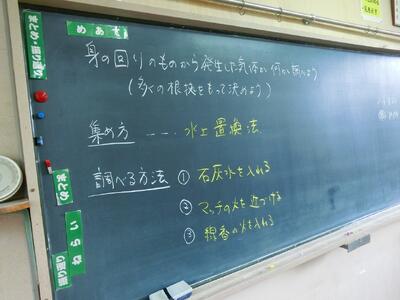 めあて
身の回りのものから発生した気体が何か調べよう
(多くの根拠をもって決めよう)
集め方 --- 水上置換法
調べる方法 ① 石灰水を入れる
② マッチの火を近づける
③ 線香の火を入れる
まとめ・振り返り
まとめ